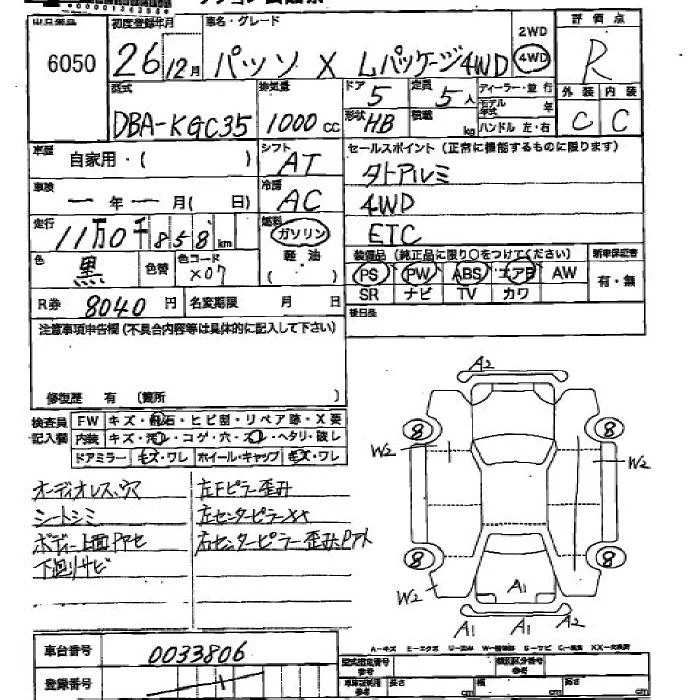 出品番号 初度登録年月 車名・グレード 2WD 評価点
6050 26年12月 パッソ X Lパッケージ4WD 4WD R
型式 排気量 ドア 定員 ディーラー・並行 外装 内装
DBA-KGC35 1000cc 5 5人 モデル年式 年 C C
形状 HB 積載 kg ハンドル 左・右
車歴 自家用・( ) シフト AT セールスポイント(正常に機能するものに限ります)
車検 ー年ー月(日) 冷房 AC タトアルミ
4WD
走行 11万0千858km 燃料 ガソリン ETC
軽油
( )
色 黒 色替 色コード X07 装備品(純正品に限り○をつけてください) 新車保証書
PS PW ABS エアB AW 有・無
SR ナビ TV カワ
R券 8040円 名変期限 月 日 後日品
注意事項申告欄(不具合内容等は具体的に記入して下さい)
修復歴 有 (箇所 )
検査員記入欄 FW キズ・飛石・ヒビ割・リペア跡・X要
内装 キズ・汚レ・コゲ・穴・スレ・ヘタリ・破レ
ドアミラー キズ・ワレ ホイール・キャップ キズ・ワレ
オーディオレス、穴 左Fピラー歪み
シートシミ 左センターピラーXX
ボディー上面Pヤセ 右センターピラー歪みPアト
下廻りサビ
A2
8 8
W2 W2
8 8
W2 A1
A1 A1
車台番号 0033806
A-キズ E-エクボ U-凹み W-補修跡 S-サビ C-腐食 XX-交換済
型式指定番号 参考 類別区分番号 参考
登録番号 車庫証明用 参考 長さ cm 幅 cm 高さ cm